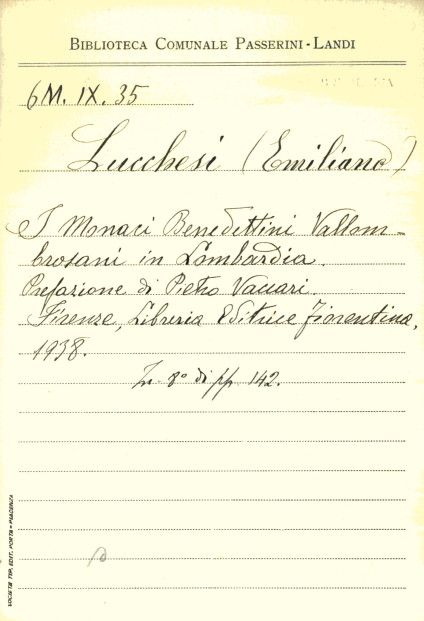 BIBLIOTECA COMUNALE PASSERINI - LANDI
6M. IX. 35
Lucchesi (Emiliano)
I Monaci Benedettini Vallom-
brosani in Lombardia.
Prefazione di Pietro Vaccari.
Firenze, Libreria Editrice Fiorentina,
1938.
In 8° di pp. 142.
SOCIETÀ TIP. EDIT. PORTA - PIACENZA